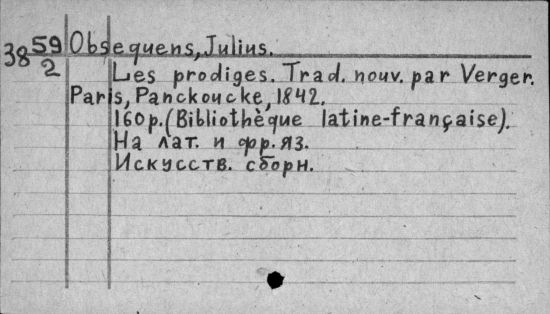 38 59/2 Obsequens, Julius.
Les prodiges. Trad. nouv. par Verger.
Paris, Panckoucke, 1842.
160 p. (Bibliothèque latine-française).
На лат. и фр. яз.
Искусств. сборн.